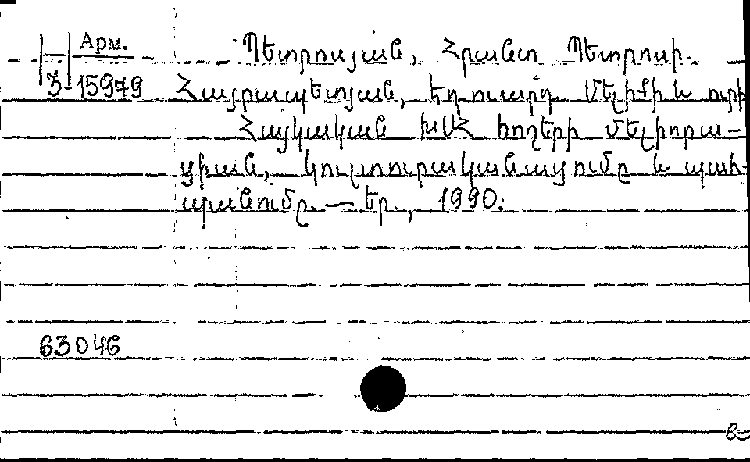 Арм.
3-15979
Պետրոսյան, Հրանտ Պետրոսի.
Հայրապետյան, Եդուարդ Մելիքի և ուրի
Հայկական ԽՍՀ հողերի մելիորա-
ցիան, կուլտուրականացումը և պահ-
պանումը. — Եր., 1990.
63046